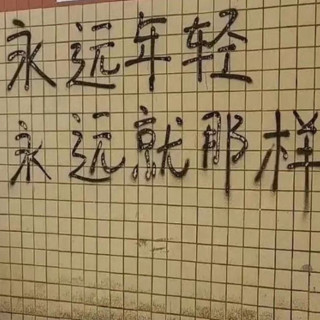 永远年轻
永远就那样